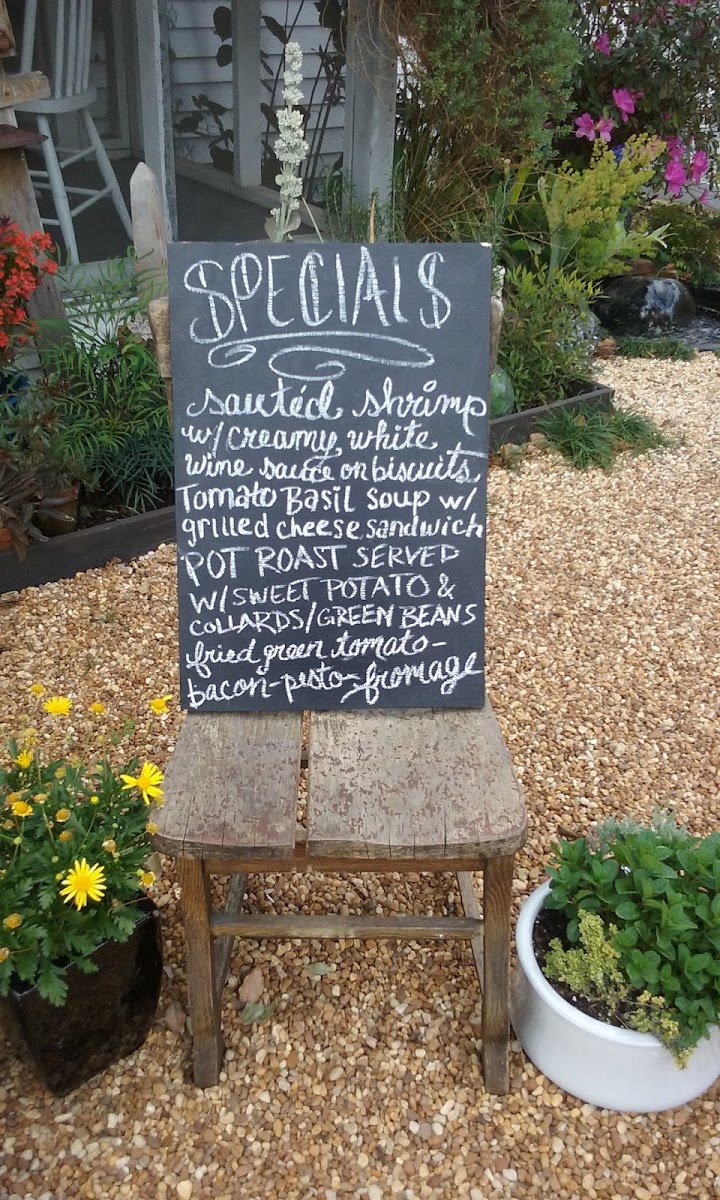 SPECIALS
sautéd shrimp
w/creamy white
wine sauce on biscuits
Tomato Basil Soup w/
grilled cheese sandwich
POT ROAST SERVED
W/SWEET POTATO &
COLLARDS/GREEN BEANS
fried green tomato-
bacon-pesto-fromage